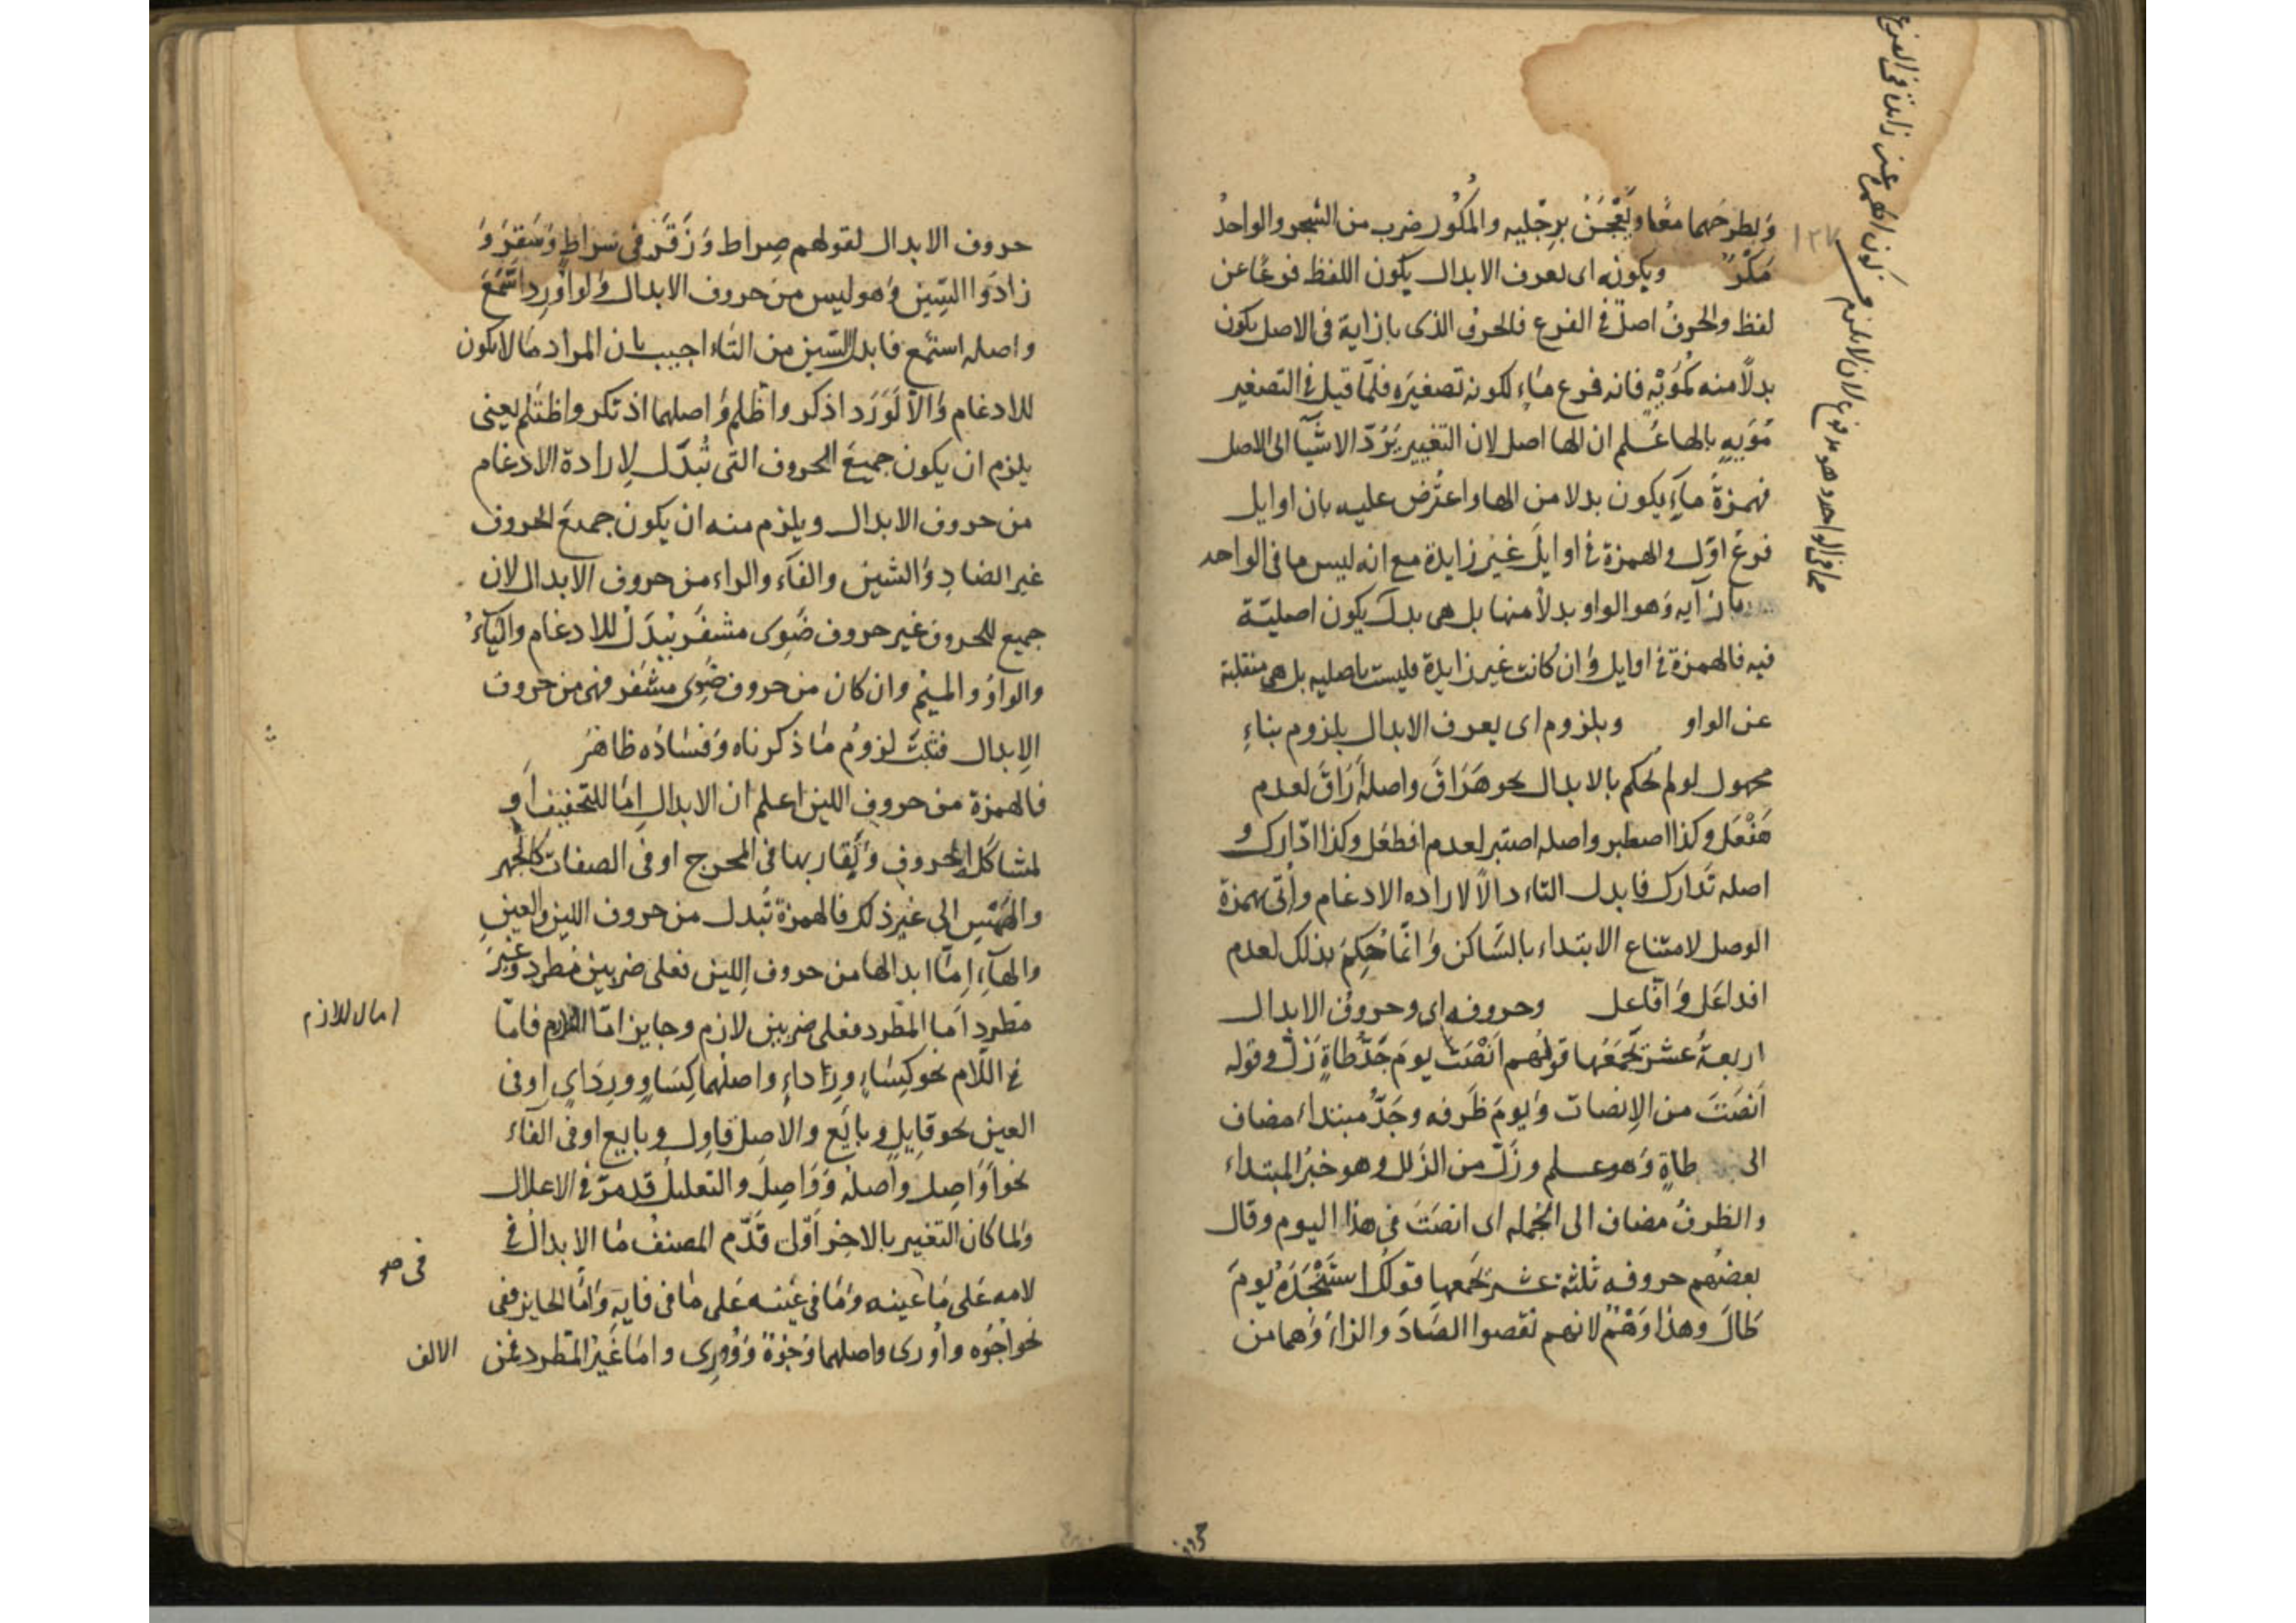 وَبطرحَهما معًا ويَعْجَنُ برجْليه والمكُور ضرب من الشجر والواحدُ
مَكْرٌ ويكونه اى يعرف الابدال بكون اللفظ فرعًا عن
لفظ والحرفُ اصلٌ فى الفرع فالحرف الذى بازاية فى الاصل يكون
بدلًا منه كمُوَيْهٍ فانه فرع ماءٍ لكونه تصغيرَه فلمّا قيل فى التصغير
مُوَيهٍ بالها عُلم ان الها اصل لان التغيير يَرُدّ الاشيآ الى الاصل
فهمزةُ مآءٍ يكون بدلا من الها واعتُرض عليه بان اوايل
فرعُ اوّل والهمزة فى اوايلَ غيرُ زايدة مع انه ليس ما فى الواحد
بازآيه وَهو الواو بدلاً منها بل هى بدل يكون اصليّة
فيه فالهمزة فى اوايل وَان كانت غير زايدة فليست باصليه بل هى منقلبة
عن الواو وبلزوم اى يعرف الابدال بلزوم بناءِ
مجهول لو لم يحكم بالابدال نحو هَرَاقَ واصله أَرَاقَ لعدم
هَفْعَل وكذا اصطبر واصله اصتبر لعدم افطعَل وكذا ادّارك و
اصله تَدارك فابدل التاء دالًا لاراده الادغام وأُتى بهمزة
الوصل لامتناع الابتداء بالسَّاكن وَانمّا حُكِمَ بذلك لعدم
افداعَل وَافّاعل وحروفه اى وحروف الابدال
اربعةُ عشر يَجْمَعُها قولُهم اَنْصَتَ يومَ جَدُّ طاةٍ زَلَّ وقوله
اَنصَتَ من الإنصات وَايومَ ظَرفه وجَدُّ مبتداء مضاف
الى طاةٍ وَهو علم وزَلّ من الزَلل وهو خبرُ المبتداء
والظرفُ مضاف الى الجُمله اى انصَتَ فى هذا اليوم وقال
بعضُهم حروفه ثلثة عشر يَجْمعها قولُك استَنْجَدَهُ يومَ
طالَ وهذا وَهْمٌ لانهم نقصوا الصَّادَ والزاءَ وَهما من
حروف
كون الهمزة غير زايدة فى الفرع
وهو مدفوع لان لا يلزم من
ما فى الواحد
١٢٧
حروف الابدال لقولهم صِراط وَزَقَرَ فى سراط وَسَقرَ وَ
زادَوا السِّين وَهو ليس من حروف الابدال وَلو اُوْرِد اسَّمَعَ
واصله استَمع فابدل السّين من التاء اجيب بان المراد مَا لا يكون
للادغام وَالّا لَوَرَد اذكر واظّلم وَاصلهما اذتكر واظتَلم يعنى
يلزم ان يكون جميعَ الحروف التى تُبدّل لإرادة الادغام
من حروف الابدال ويلزم منه ان يكون جميعَ الحروف
غير الضادِ وَالشين والفآء والراء من حروف الابدال لان
جميع الحروف غير حروف ضَوِى مشفَر يُبْدَلْ للادغام واليآءُ
والواوُ والميْم وان كان من حروف ضَوِى مِشْفَر فهى من حروف
الإبدال فثبَتَ لزومُ مَا ذكرناه وَفسَادُه ظاهرَ
فالهمزة من حروف اللين اعلم ان الابدال امّا للتخفيف أو
لمشاكَل الحروف وَيُقاربها فى المخرج او فى الصفات كالجَهر
والهَمْسِ الى غير ذلك فالهمزة تُبدل من حروف اللين والعينِ
والهآءِ اِمّا ابدالها من حروف اللين فعلى ضربين مُطرد وغيرَ
مطردٍ اَما المطّرد فعلى ضربين لازم وجايز امّا اللازم فامّا
فى اللّام نحو كِسَاءٍ ورِدَاءٍ واصلهما كِسَاوٍ ورِدَاىٍ او فى
العين نحو قايلٍ وبايَع والاصل قاوِل وبايع او فى الفاء
نحو اَوَاصِل وَاصلهُ وَوَاصِلَ والتعليل قد مرّ فى الاعلال
ولما كان التغيير بالاخر اَوّل قدّم المصنفُ مَا الابدال فى
لامِه عَلى مَا عينه وَمَا فى عَينه عَلى مَا فى فايه وَامّا الجايز ففى
نحو اجُوه واُورى واصلهما وُجُوهٌ وَوُورِى وامَا غَيرُ المطّرد فمن الالف
اما اللازم
فى صو